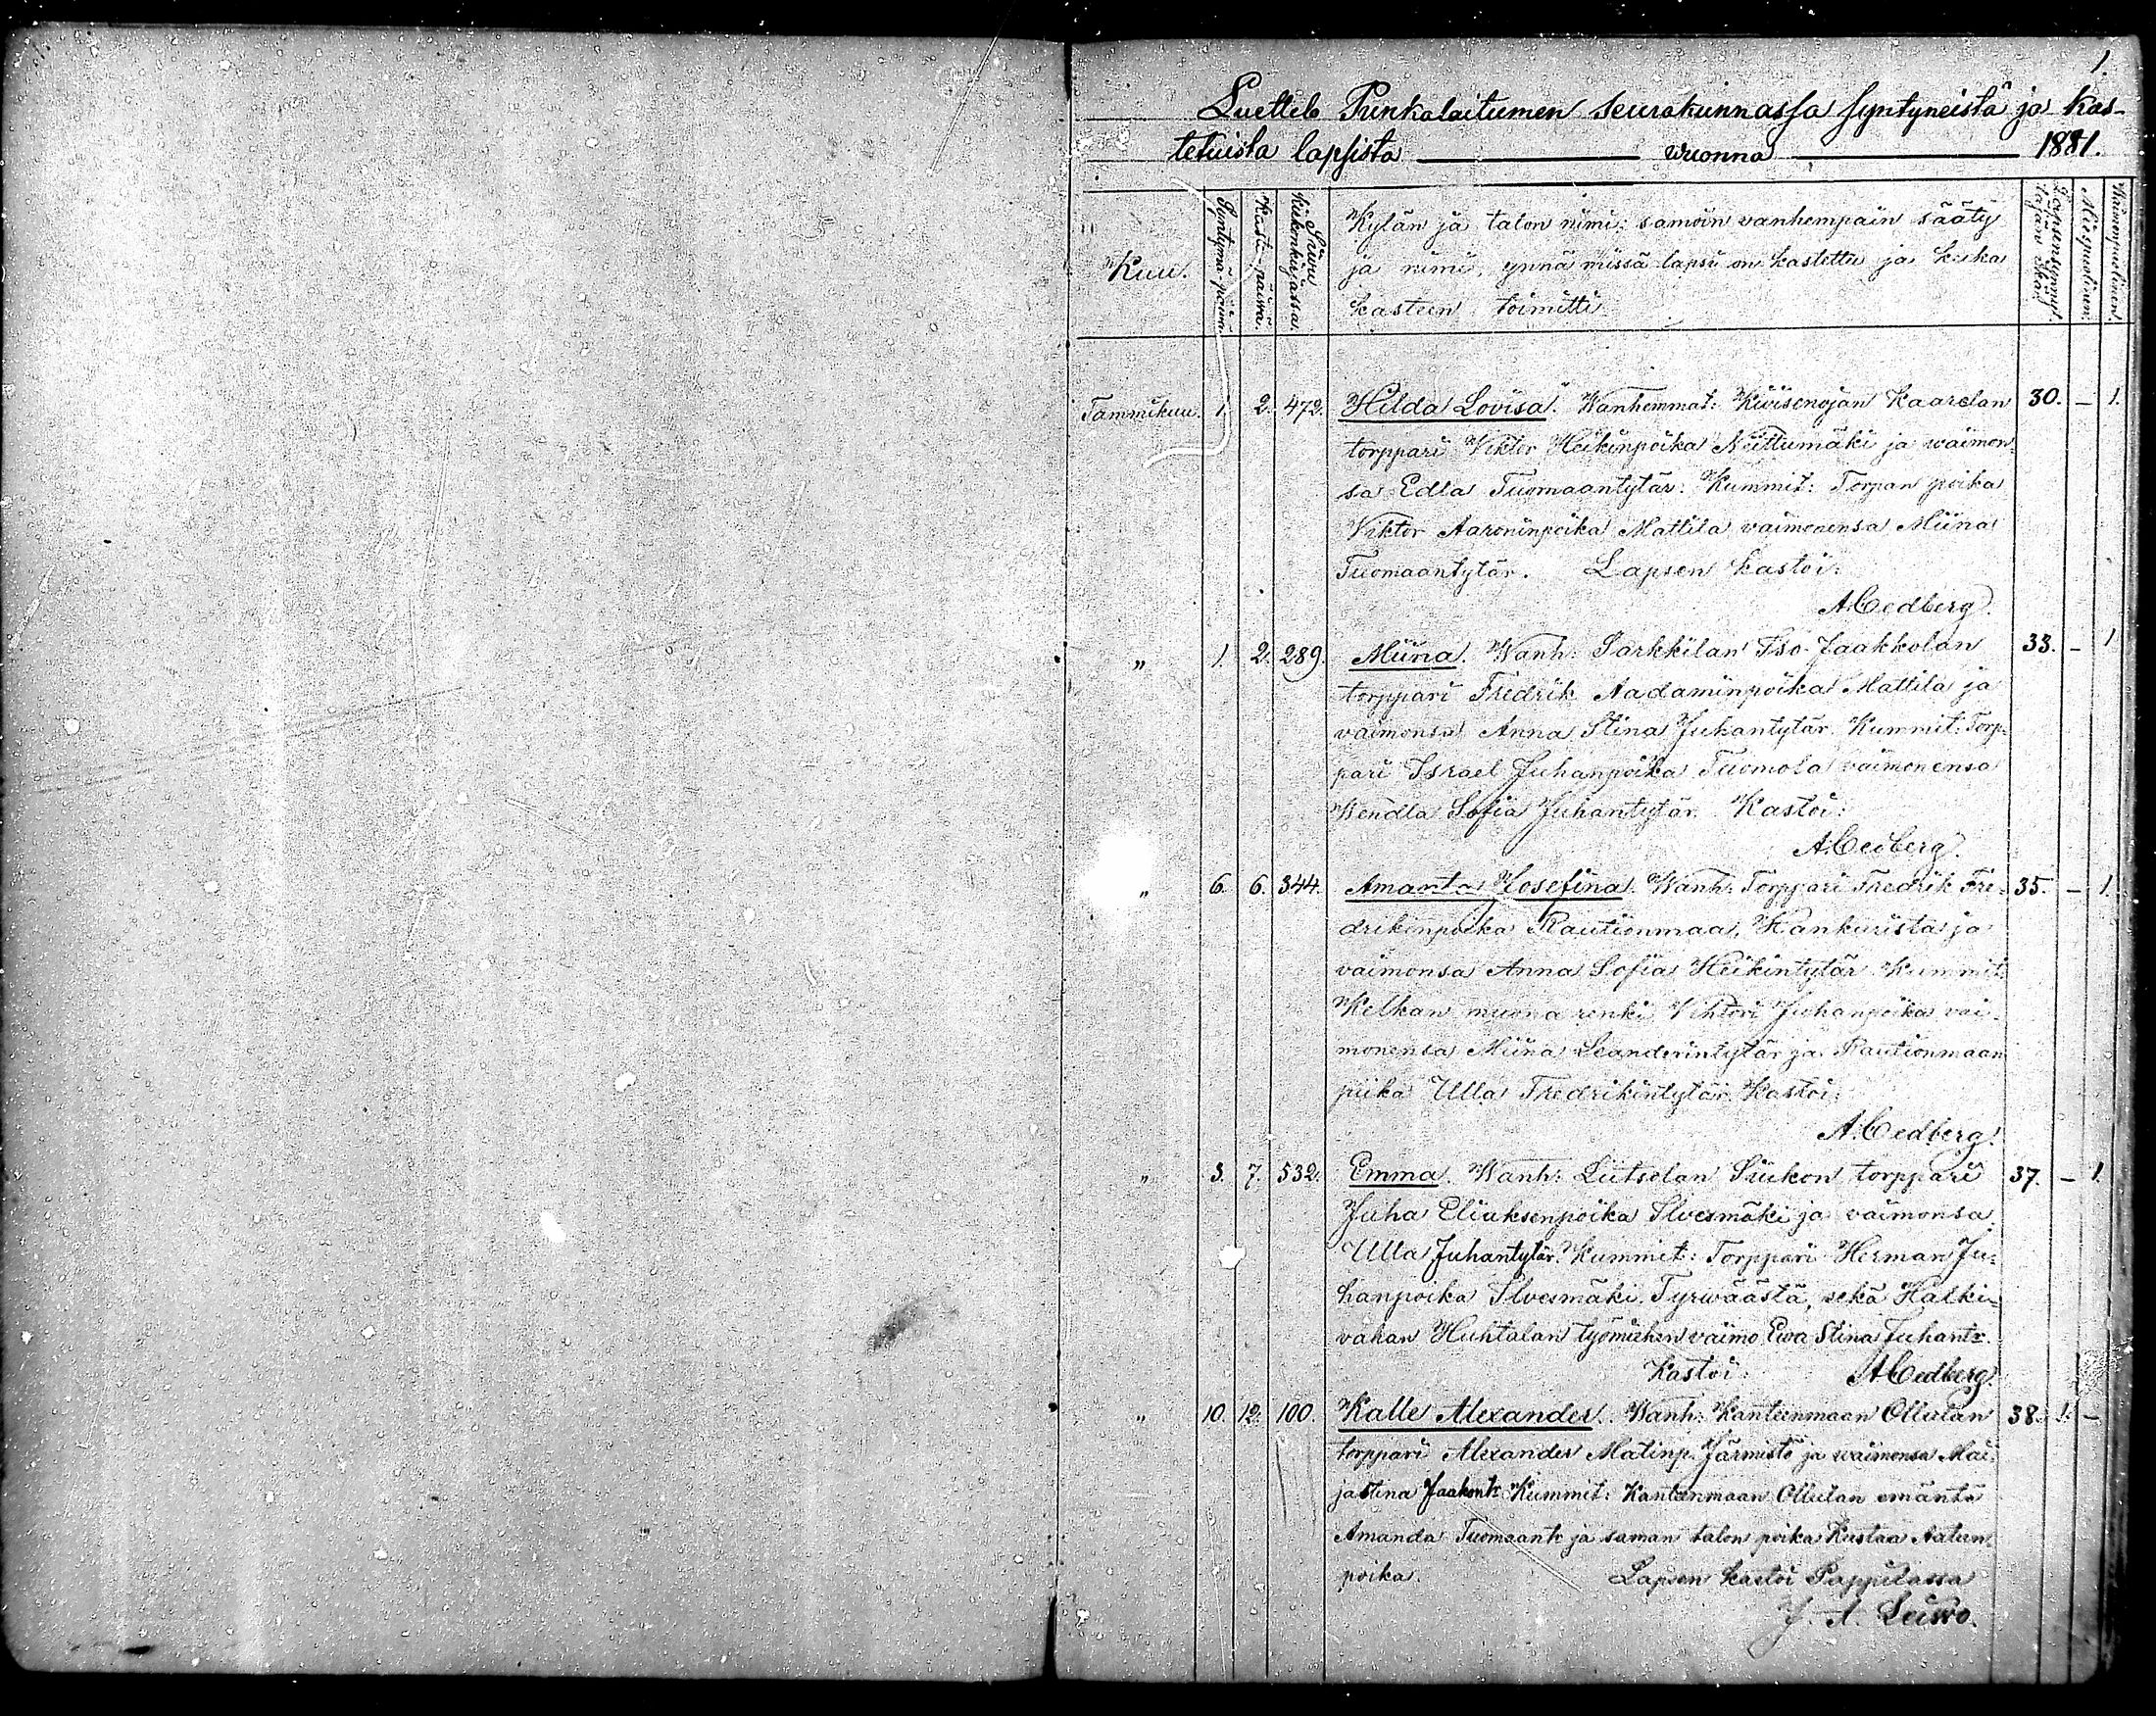 1.
Luettelo Punkalaitumen seurakunnassa syntyneistä ja kas-
tetuista lapsista ——— vuonna ——— 1881.
Kuu.
Syntymä-päivä.
Kaste-päivä.
Sivu kirkonkirjassa.
Kylän ja talon nimi; samoin vanhempain sääty
ja nimi, ynnä missä lapsi on kastettu ja kuka
kasteen toimitti.
Lapsensynnyt-
täjän ikä.
Miespuolinen.
Waimonpuolinen.
Tammikuu. 1. 2. 472. Hilda Lovisa. Wanhemmat: Kiviisenojan Kaarelan 30. — 1.
torppari Viktor Heikinpoika Niittumäki ja waimon-
sa Edla Tuomaantytär. Kummit: Torpan poika
Viktor Aaroninpoika Mattila vaimonensa Miina
Tuomaantytär. Lapsen kastoi:
A. Cedberg.
„ 1. 2. 289. Miina. Wanh: Sarkkilan Iso-Jaakkolan 33. — 1
torppari Fredrik Aadaminpoika Mattila ja
vaimonsa Anna Stina Juhantytär. Kummit: Torp-
pari Israel Juhanpoika Tuomola vaimonensa
Wendla Sofia Juhantytär. Kastoi:
A. Cedberg.
„ 6. 6. 344. Amanta Josefina. Wanh: Torppari Fredrik Fre- 35. — 1.
drikinpoika Rautionmaa, Kankurista ja
vaimonsa Anna Sofia Heikintytär. Kummit:
Kelkan muona renki Vihtori Juhanpoika vai-
monensa Miina Leanderintytär ja Rautionmaan
piika Ulla Fredrikintytär. Kastoi:
A. Cedberg.
„ 3. 7. 532. Emma. Wanh: Liitsolan Siukon torppari 37. — 1.
Juha Eliaksenpoika Ilvesmäki ja vaimonsa
Ulla Juhantytär. Kummit: Torppari Herman Ju-
hanpoika Ilvesmäki Tyrwäästä, sekä Halki-
vahan Huhtalan työmiehen vaimo Ewa Stina Juhantr.
Kastoi: A. Cedberg.
„ 10. 12. 100. Kalle Alexander. Wanh: Kanteenmaan Ollulan 38. 1. —
torppari Alexander Matinp. Järmistö ja waimonsa Mai-
jastina Jaakontr. Kummit: Kanteenmaan Ollulan emäntä
Amanda Tuomaantr ja saman talon poika Kustaa Aatun-
poika. Lapsen kastoi Pappilassa
J. A. Leisso.